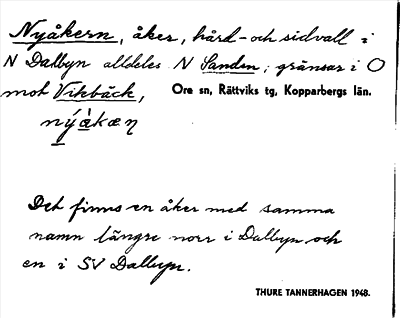 Nyåkern, åker, hård- och sidvall i
N Dalbyn alldeles N Sanden; gränsar i O
mot Vikbäck,
Ore sn, Rättviks tg, Kopparbergs län.
nýàkæn̥
Det finns en åker med samma
namn längre norr i Dalbyn och
en i SV Dalbyn.
THURE TANNERHAGEN 1948.